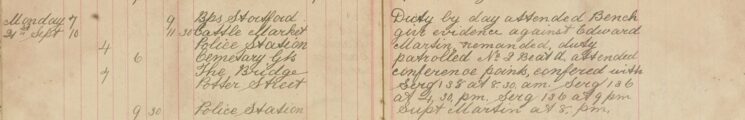 Monday 7 9 Bps Stortford Duty by day attended Bench
21st Sept 10 11 30 Cattle Market giv evidence against Edward
4 Police Station Martin, remanded, duty
6 Cemetary Gts patrolled No 2 Beat d, attended
7 The Bridge conference points, confered with
Potter Street Serg 138 at 8.30. am. Serg 136
at 4,30, pm. Serg 136 at 9 pm
9 30 Police Station Supt Martin at 8. pm.